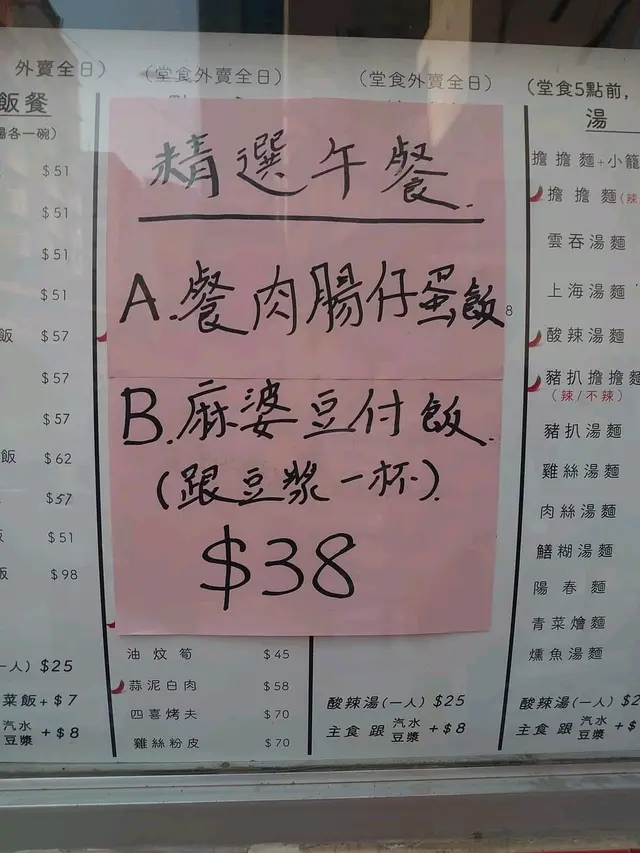 外賣全日）
飯餐
湯各一碗）
$51
$51
$51
$51
飯 $57
$57
$57
飯 $62
$57
飯 $51
飯 $98
一人）$25
菜飯+$7
汽水
豆漿 +$8
（堂食外賣全日）
（堂食外賣全日）
精選午餐
A.餐肉腸仔蛋飯
8
B.麻婆豆付飯
（跟豆漿一杯）
$38
油炆筍 $45
蒜泥白肉 $58
四喜烤夫 $70
雞絲粉皮 $70
酸辣湯(一人) $25
主食跟 汽水
豆漿 +$8
（堂食5點前，
湯
擔擔麵+小籠
擔擔麵(辣
雲吞湯麵
上海湯麵
酸辣湯麵
豬扒擔擔麵
（辣/不辣）
豬扒湯麵
雞絲湯麵
肉絲湯麵
鱔糊湯麵
陽春麵
青菜燴麵
燻魚湯麵
酸辣湯(一人) $2
主食跟 汽水
豆漿 +$